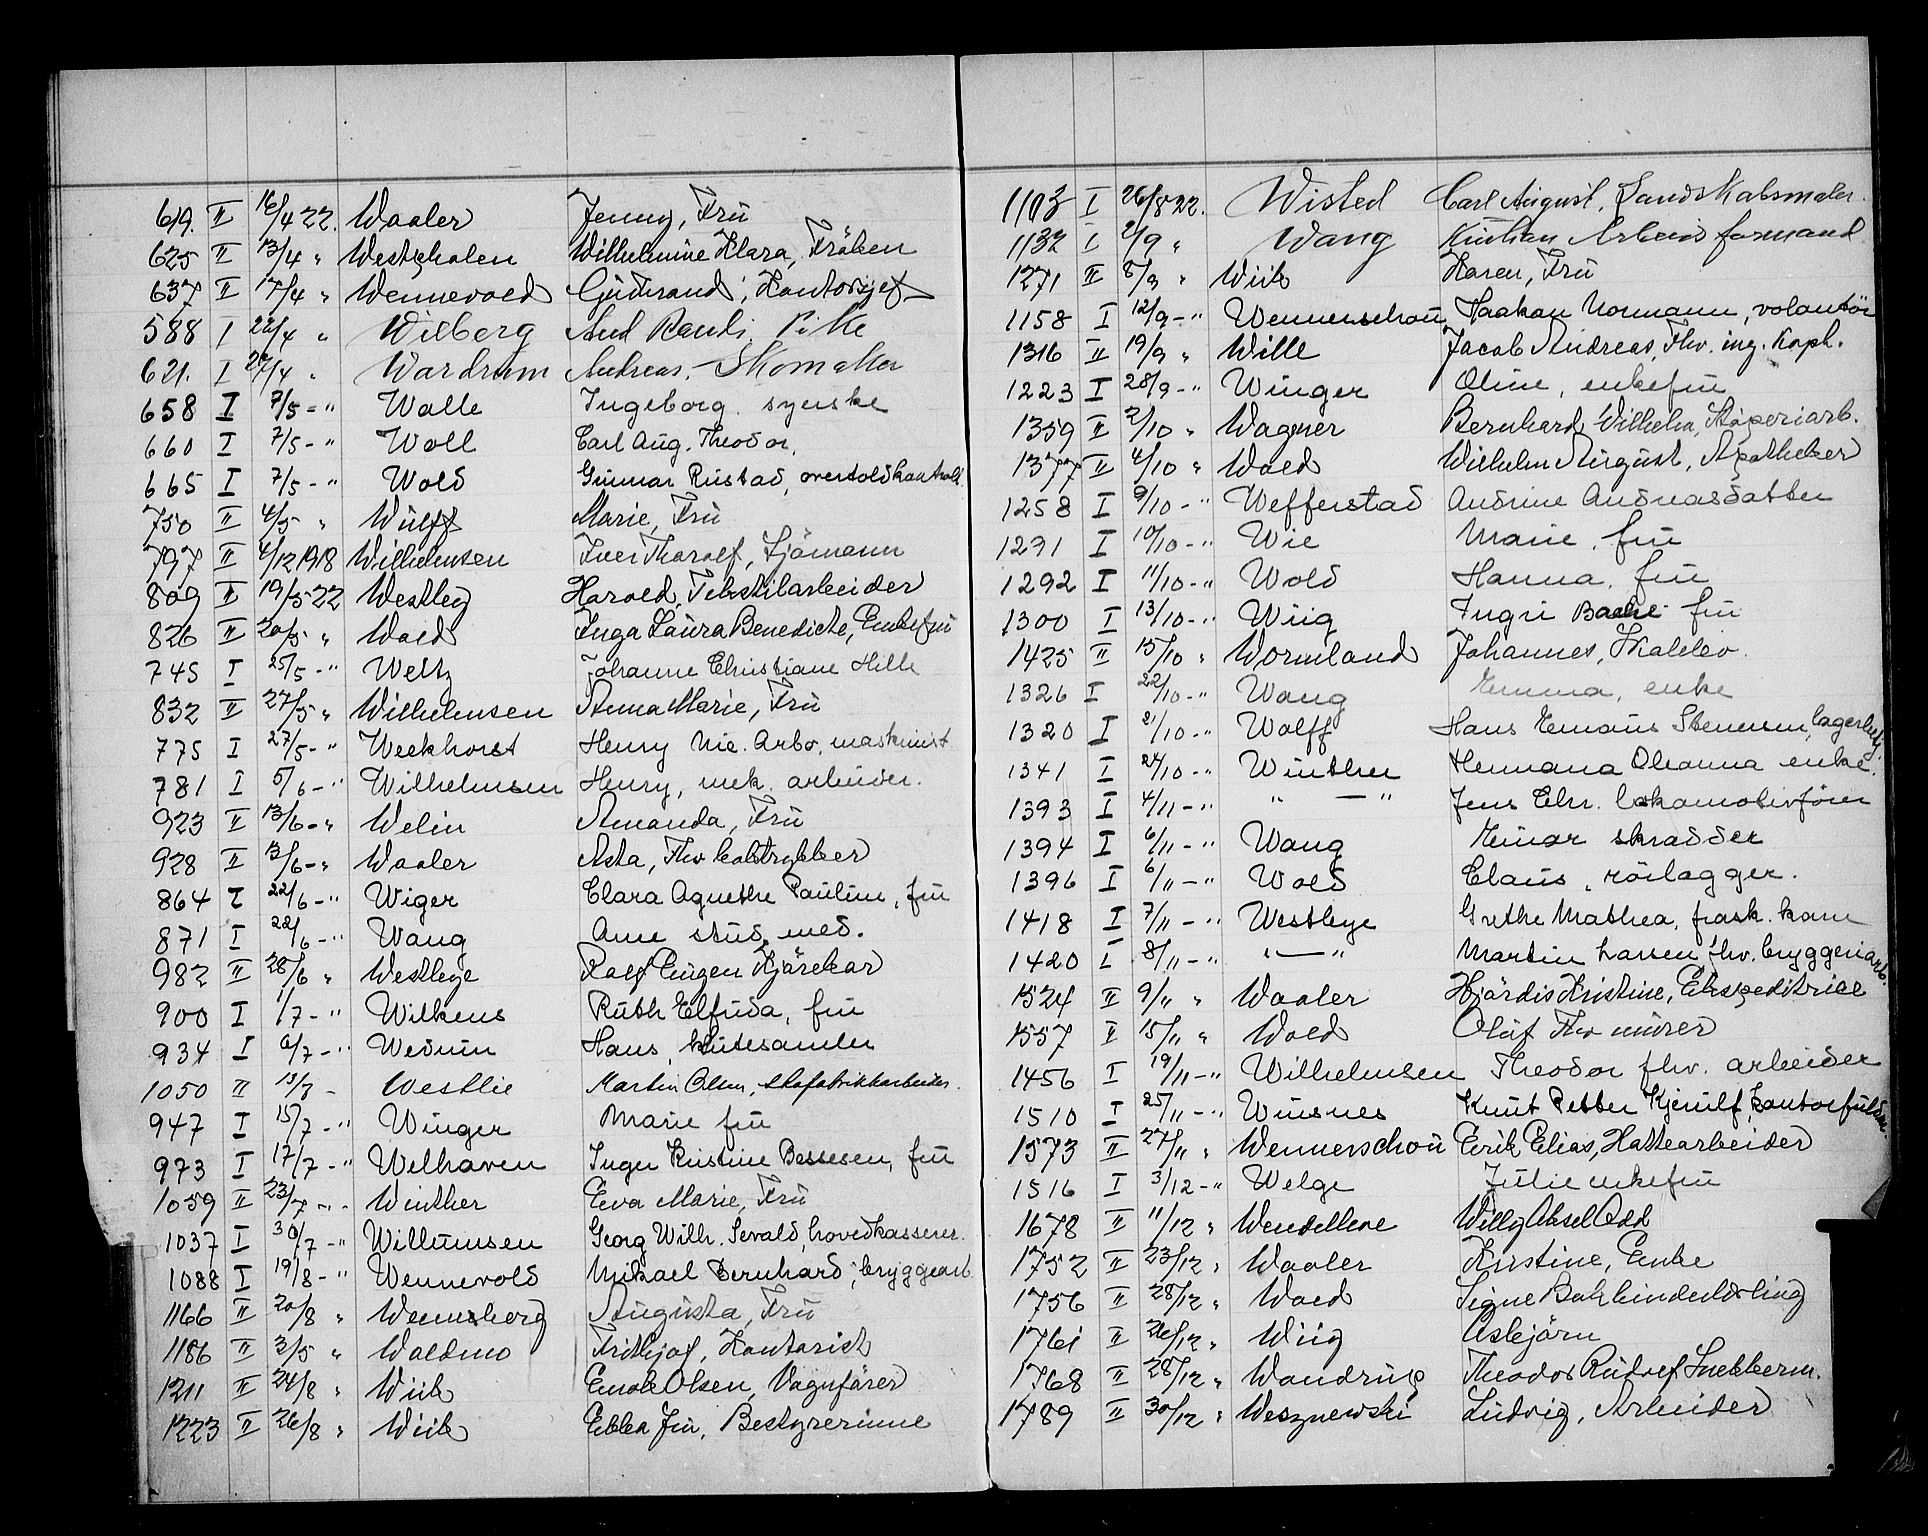 619. II 16/4 22. Waaler Jenny, Frú
625 II 13/4 " Westgholen Wilhelmine Klara, Fröken
637 II 17/4 " Wennevold Gudbrand, Kontorsjef
588 I 22/4 " Wilberg Aud Randi, Pike
621. I 27/4 " Wardrum Andreas, Skomaker
658 I 7/5 - " Walle Ingeborg. syerske
660 I 7/5 - " Woll Carl Aug. Theodor.
665 I 7/5 - " Wold Gunnar Rustad, overtoldkontroll
750 II 4/5 " Wulff Marie, Frú
797 II 4/12 1918 Wilhelmsen Iver Tharalf, Sjömann
809 II 19/5 22 Westley Harald, Tekstilarbeider
826 II 20/5 " Wold Inga Laura Benedicte, Enkefrú
745 I 25/5 - " Weltz Johanne Christiane Hille
832 II 27/5 " Wilhelmsen Anna Marie, Frú
775 I 27/5 - " Weekhorst Henry Nic. Arbo, maskinist
781 I 5/6 - " Wilhelmsen Henry, mek. arbeider.
923 II 13/6 - " Welin Amanda, Frú
928 II 13/6 - " Waaler Asta, Fhv boktrykker
864 I 22/6 - " Wiger Clara Agnethe Pauline, frú
871 I 22/6 - " Wang Arne stud. med.
982 II 28/6 " Westlye Ralf Eugen Kjärekar
900 I 1/7 - " Wilkens Ruth Elfrida, frú
934 I 6/7 - " Wedum Hans, klutesamler
1050 II 13/7 - Westlie Martin Olsen, skofabrikkarbeider.
947 I 15/7 - " Winger Marie frú
973 I 17/7 - " Welhaven Inger Kristine Bessesen, frú
1059 II 23/7 - " - Winther Eva Marie, Frú
1037 I 30/7 - " Willumsen Georg Wilh. Sevald, hovedkasserer.
1088 I 19/8 - " Wennevold Mikael Bernhard, bryggearb.
1166 II 20/8 " Wennberg Augusta, Frú
1186 II 2/5 " Waldmo Frithjof, Kontorist
1211 II 24/8 " Wiik Enok Olsen, Vognförer
1223 II 26/8 " Wiik Ebba Frú, Bestyrerinne
1103 I 26/8 22. Wisted Carl August, Landskabsmaler.
1132 I 2/9 " Wang Kristian Arbeidsformand
1271 II 8/9 " Wiik Karen, Frú
1158 I 12/9 - " Wennerschou Haakon Normann, volontör
1316 II 19/9 " Wille Jacob Andreas, Fhv. ing. Kapt.
1223 I 28/9 - " Winger Oline, enkefrú
1359 II 2/10 " Wagner Bernhard Wilhelm, Stöperiarb.
1377 II 4/10 " Wold Wilhelm August, Apotheker
1258 I 9/10 - " Wefferstad Andrine Andreasdatter
1291 I 10/10 - " Wie Marie, frú
1292 I 11/10 - " Wold Hanna, frú
1300 I 13/10 - " Wiig Ingri Bache frú
1425 II 15/10 " Wormland Johannes,
1326 I 22/10 - " Wang Emma, enke
1320 I 21/10 - " Wolff Hans Emaus Stenersen, lagerbetj.
1341 I 24/10 - " Winther Hermana Oleanna enke.
1393 I 4/11 - " " — " Jens Chr. lokomotivförer
1394 I 6/11 - " Wang Einar skradder
1396 I 6/11 - " Wold Claus, rörlagger.
1418 I 7/11 - " Westlye Grethe Mathea, frask. kone
1420 I 8/11 - " " — " Martin Larsen, fhv. bryggeriarb.
1524 II 9/11 " Waaler Hjördis Kristine, Ekspeditrice
1557 II 15/11 " Wold Oluf Fhv murer
1456 I 19/11 - " Wilhelmsen Theodor fhv. arbeider
1510 I 25/11 - " Wisnes Knut Petter Kjerulf, kontorfullm.
1573 II 27/11 " Wennerschou Erik Elias, Hattearbeider
1516 I 3/12 - " Welge Julie enkefrú
1678 II 11/12 " Wendelboe Willy Aksel Odd
1752 II 23/12 " Waaler Kristine, Enke
1756 II 28/12 " Wold Signe Bokbinderlærling
1761 II 26/12 " Wiig Asbjörn
1768 II 28/12 " Wandrup Theodor Rudolf Snekkerm.
1789 II 30/12 " Wesznewski Ludvig, Arbeider